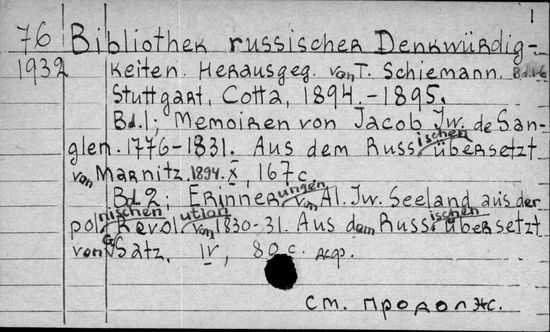 1
76 Bibliothek russischer Denkwürdig-
1932 keiten. Herausgeg. von T. Schiemann. Bd.1-6
Stuttgart, Cotta, 1894.-1895.
Bd.1; Memoiren von Jacob Iw. de San-
glen. 1776-1831. Aus dem Russischen übersetzt
von Marnitz. 1894. X, 167 c.
Bd.2; Erinnerungen von Al. Iw. Seeland aus der
polnischen Revolution von 1830-31. Aus dem Russischen übersetzt
von G Satz. IV, 80 c.
см. продолж.